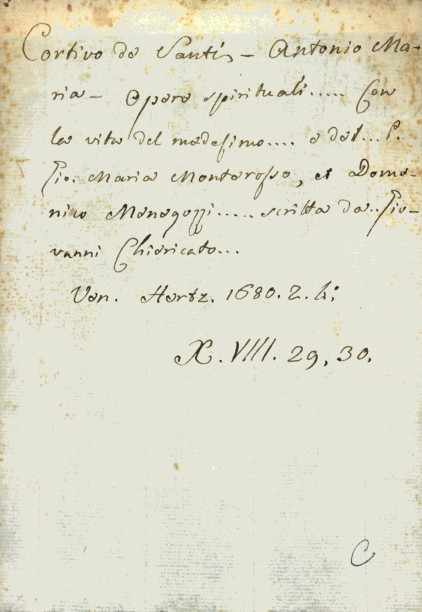 Cortivo de Santi – Antonio Ma-
ria – Opere spirituali..... Con
la vita del medesimo.... e del... P.
Gio. Maria Monterosso, et Dome-
nico Menegozzi..... scritta da.. Gio-
vanni Chiericato...
Ven. Hertz. 1680. T. 4:
X. VIII. 29, 30.
C